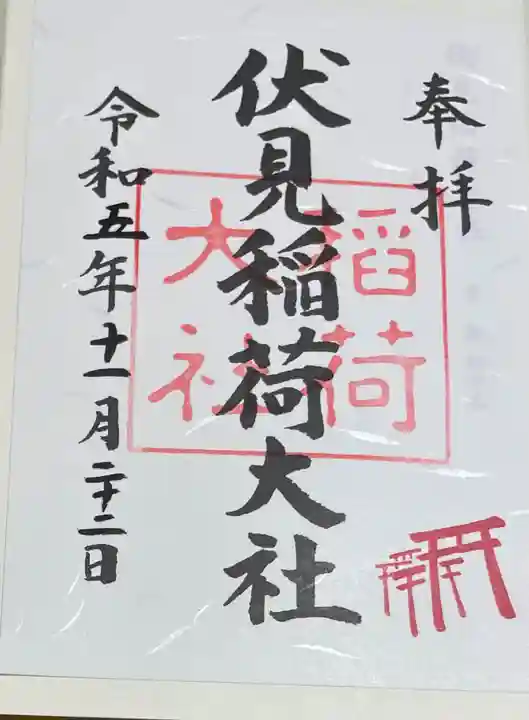 奉拝
伏見稲荷大社
稲荷
大社
令和五年十一月二十二日